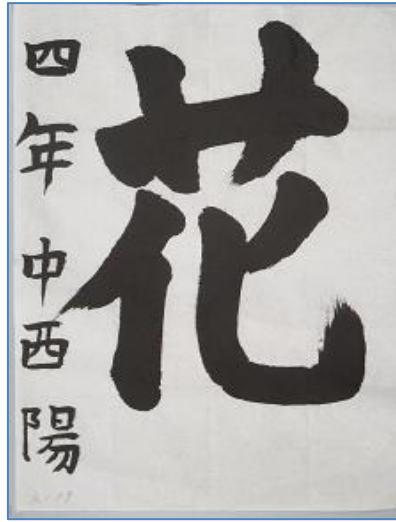 花
四年 中西陽